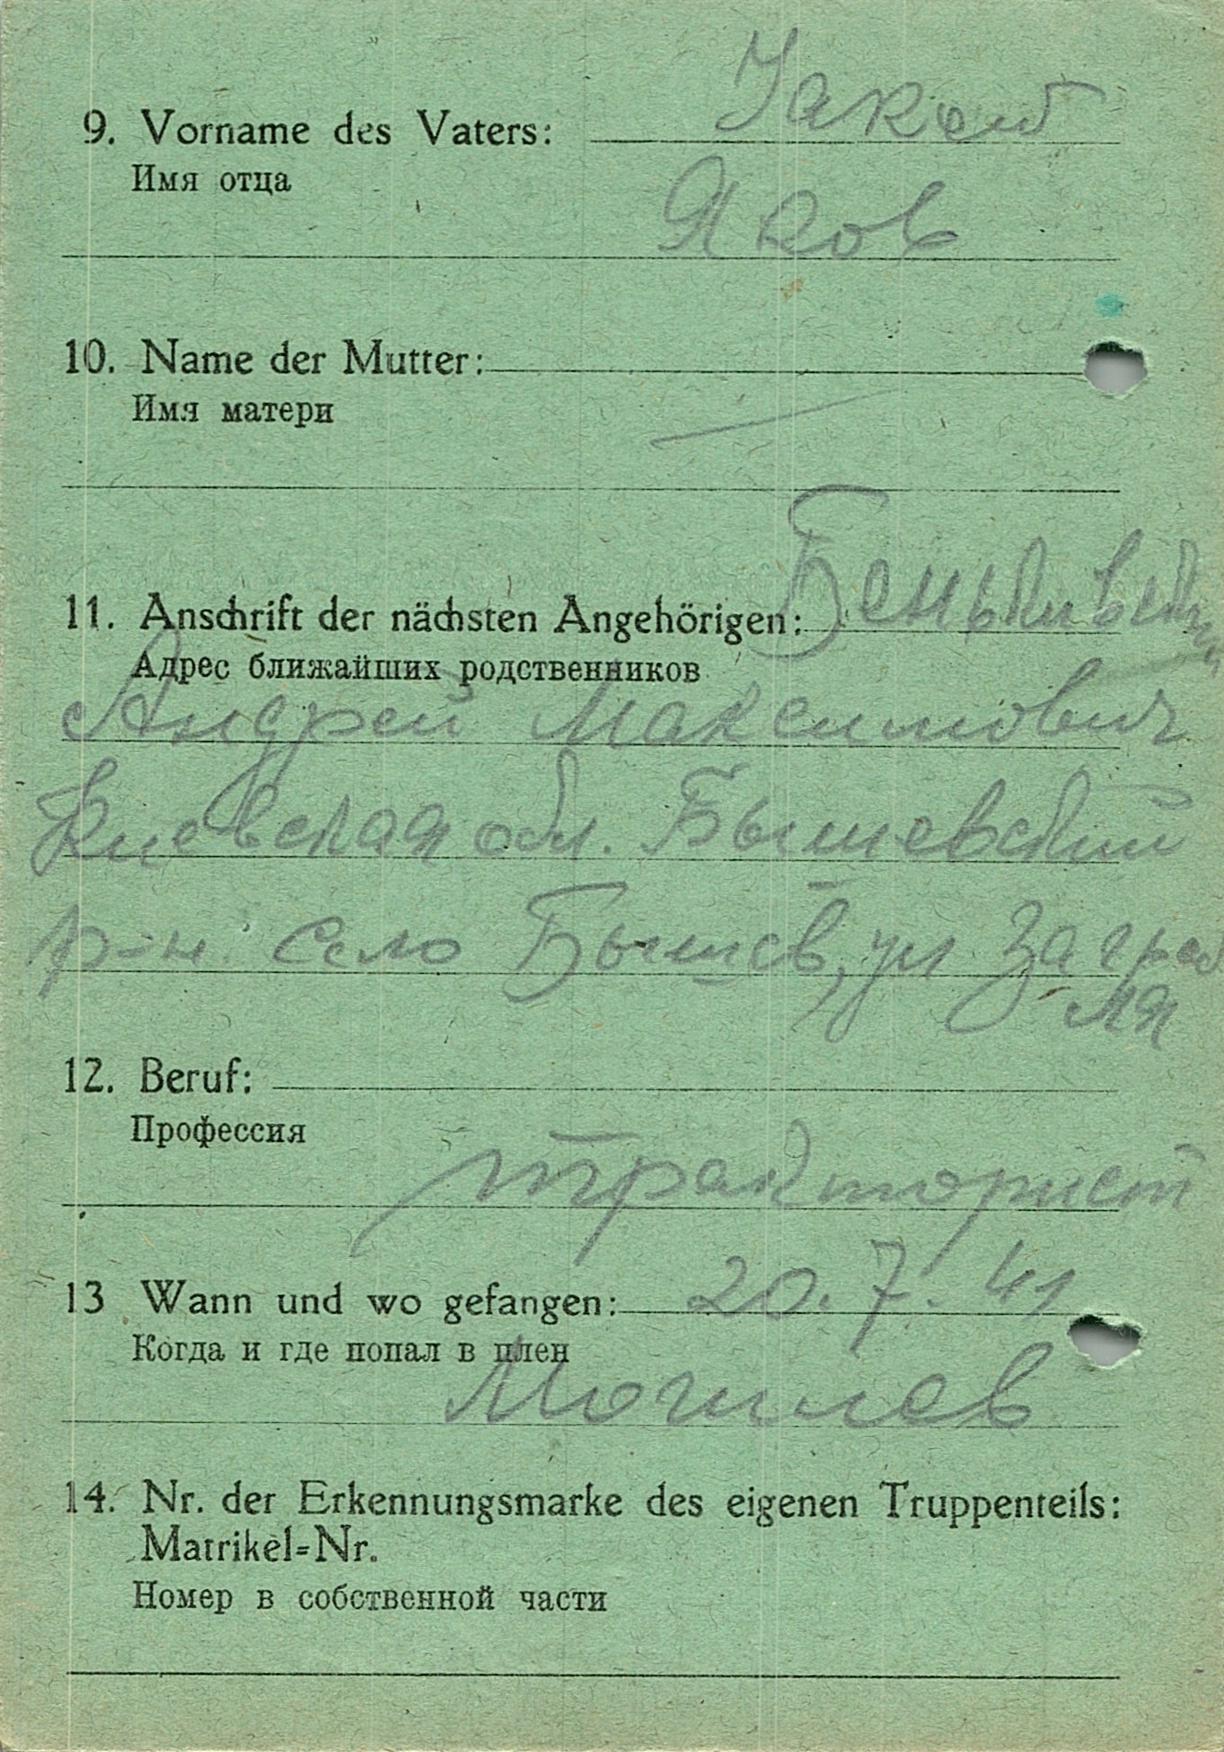 9. Vorname des Vaters: Jakow
Имя отца
Яков
10. Name der Mutter:
Имя матери
11. Anschrift der nächsten Angehörigen:
Адрес ближайших родственников
Андрей Максимович
Киевская обл. Бышевский
р-н. село Бышев, ул
12. Beruf:
Профессия
тракторист
13 Wann und wo gefangen: 20.7.41
Когда и где попал в плен
Могилев
14. Nr. der Erkennungsmarke des eigenen Truppenteils:
Matrikel=Nr.
Номер в собственной части